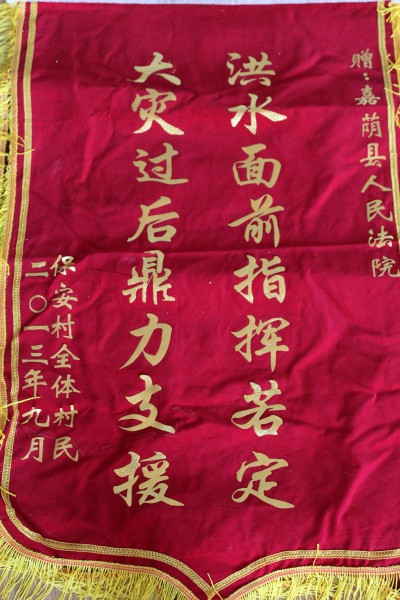 赠：嘉荫县人民法院
洪水面前指挥若定
大灾过后鼎力支援
保安村全体村民
二〇一三年九月